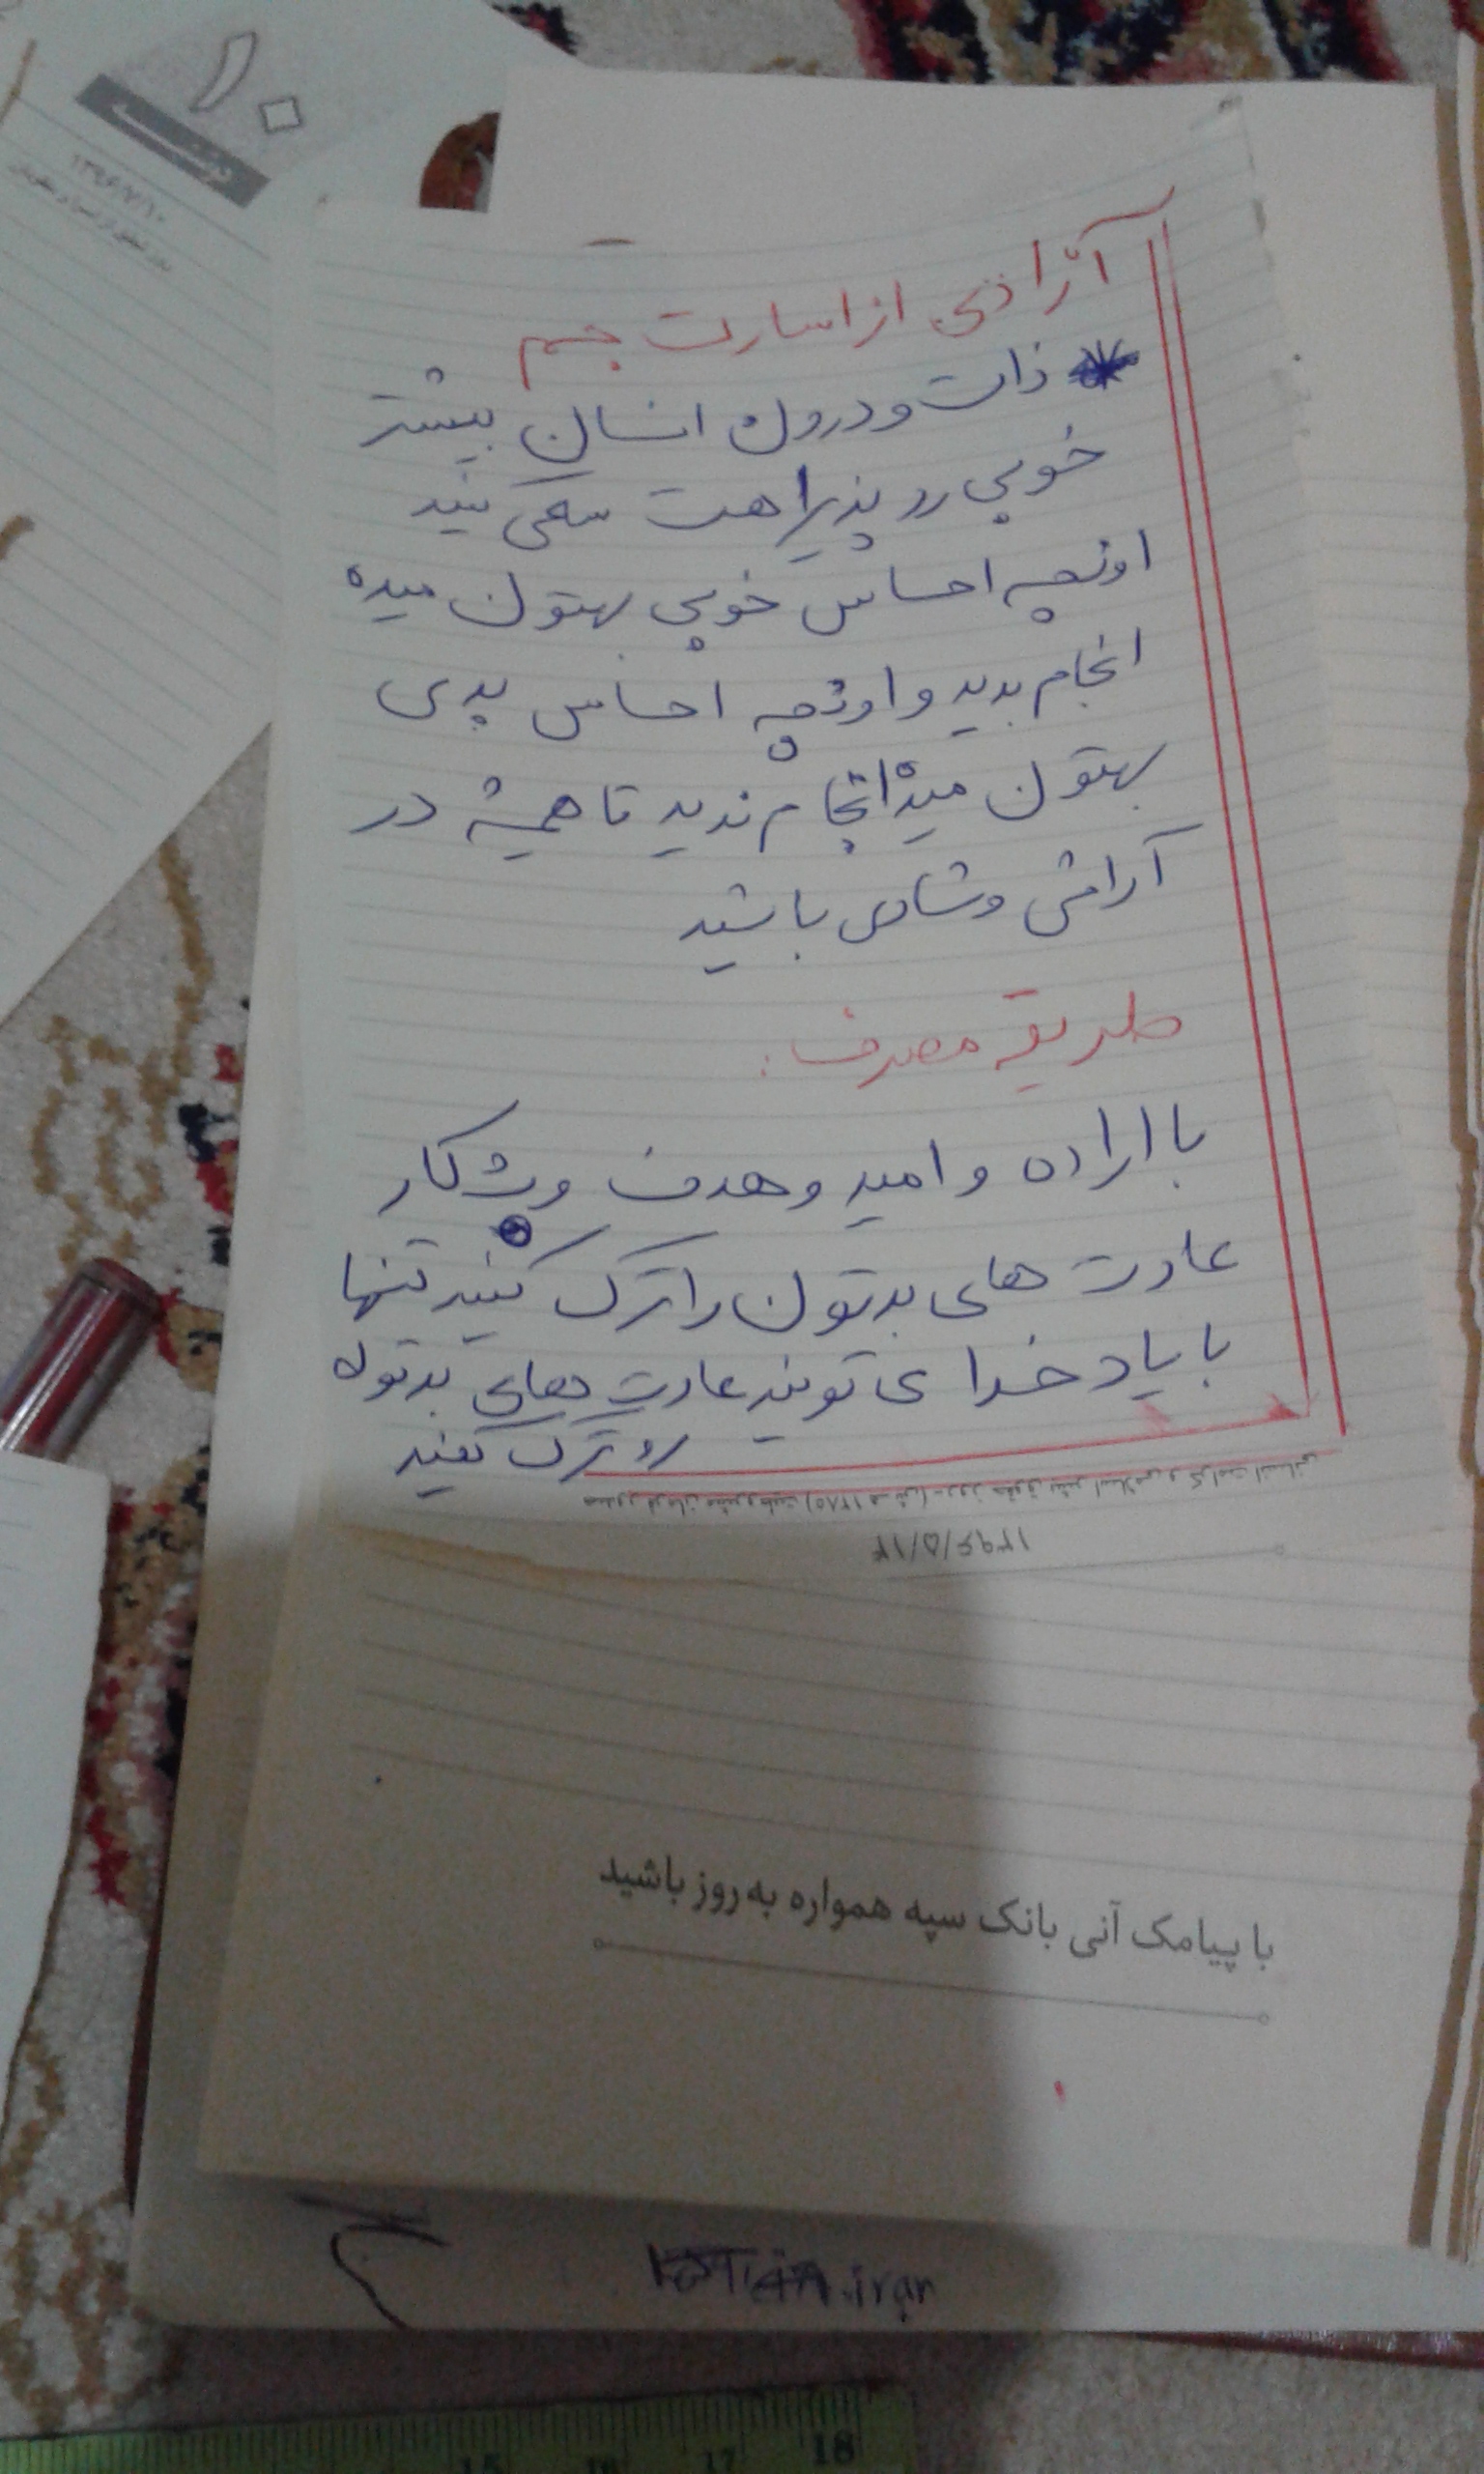 ۱۰
۱۳۹۶/۷/۱۰
آزادی از اسارت جسم
ذات و درون انسان بیشتر
خوبی رو پذیرا هست سعی کنید
اونچه احساس خوبی بهتون میده
انجام بدید و اونچه احساس بدی
بهتون میده انجام ندید تا همیشه در
آرامش و شادی باشید
طریقه مصرف:
با اراده و امید و هدف و پشتکار
عادت های بدتون را ترک کنید تنها
با یاد خدا می تونید عادت های بدتون
رو ترک کنید
صدور فرمان مشروطیت (۱۲۸۵ هـ ش) - روز حقوق بشر اسلامی و کرامت انسانی
۱۳۹۶/۵/۱۴
با پیامک آنی بانک سپه همواره به روز باشید
iran
15 16 17 18